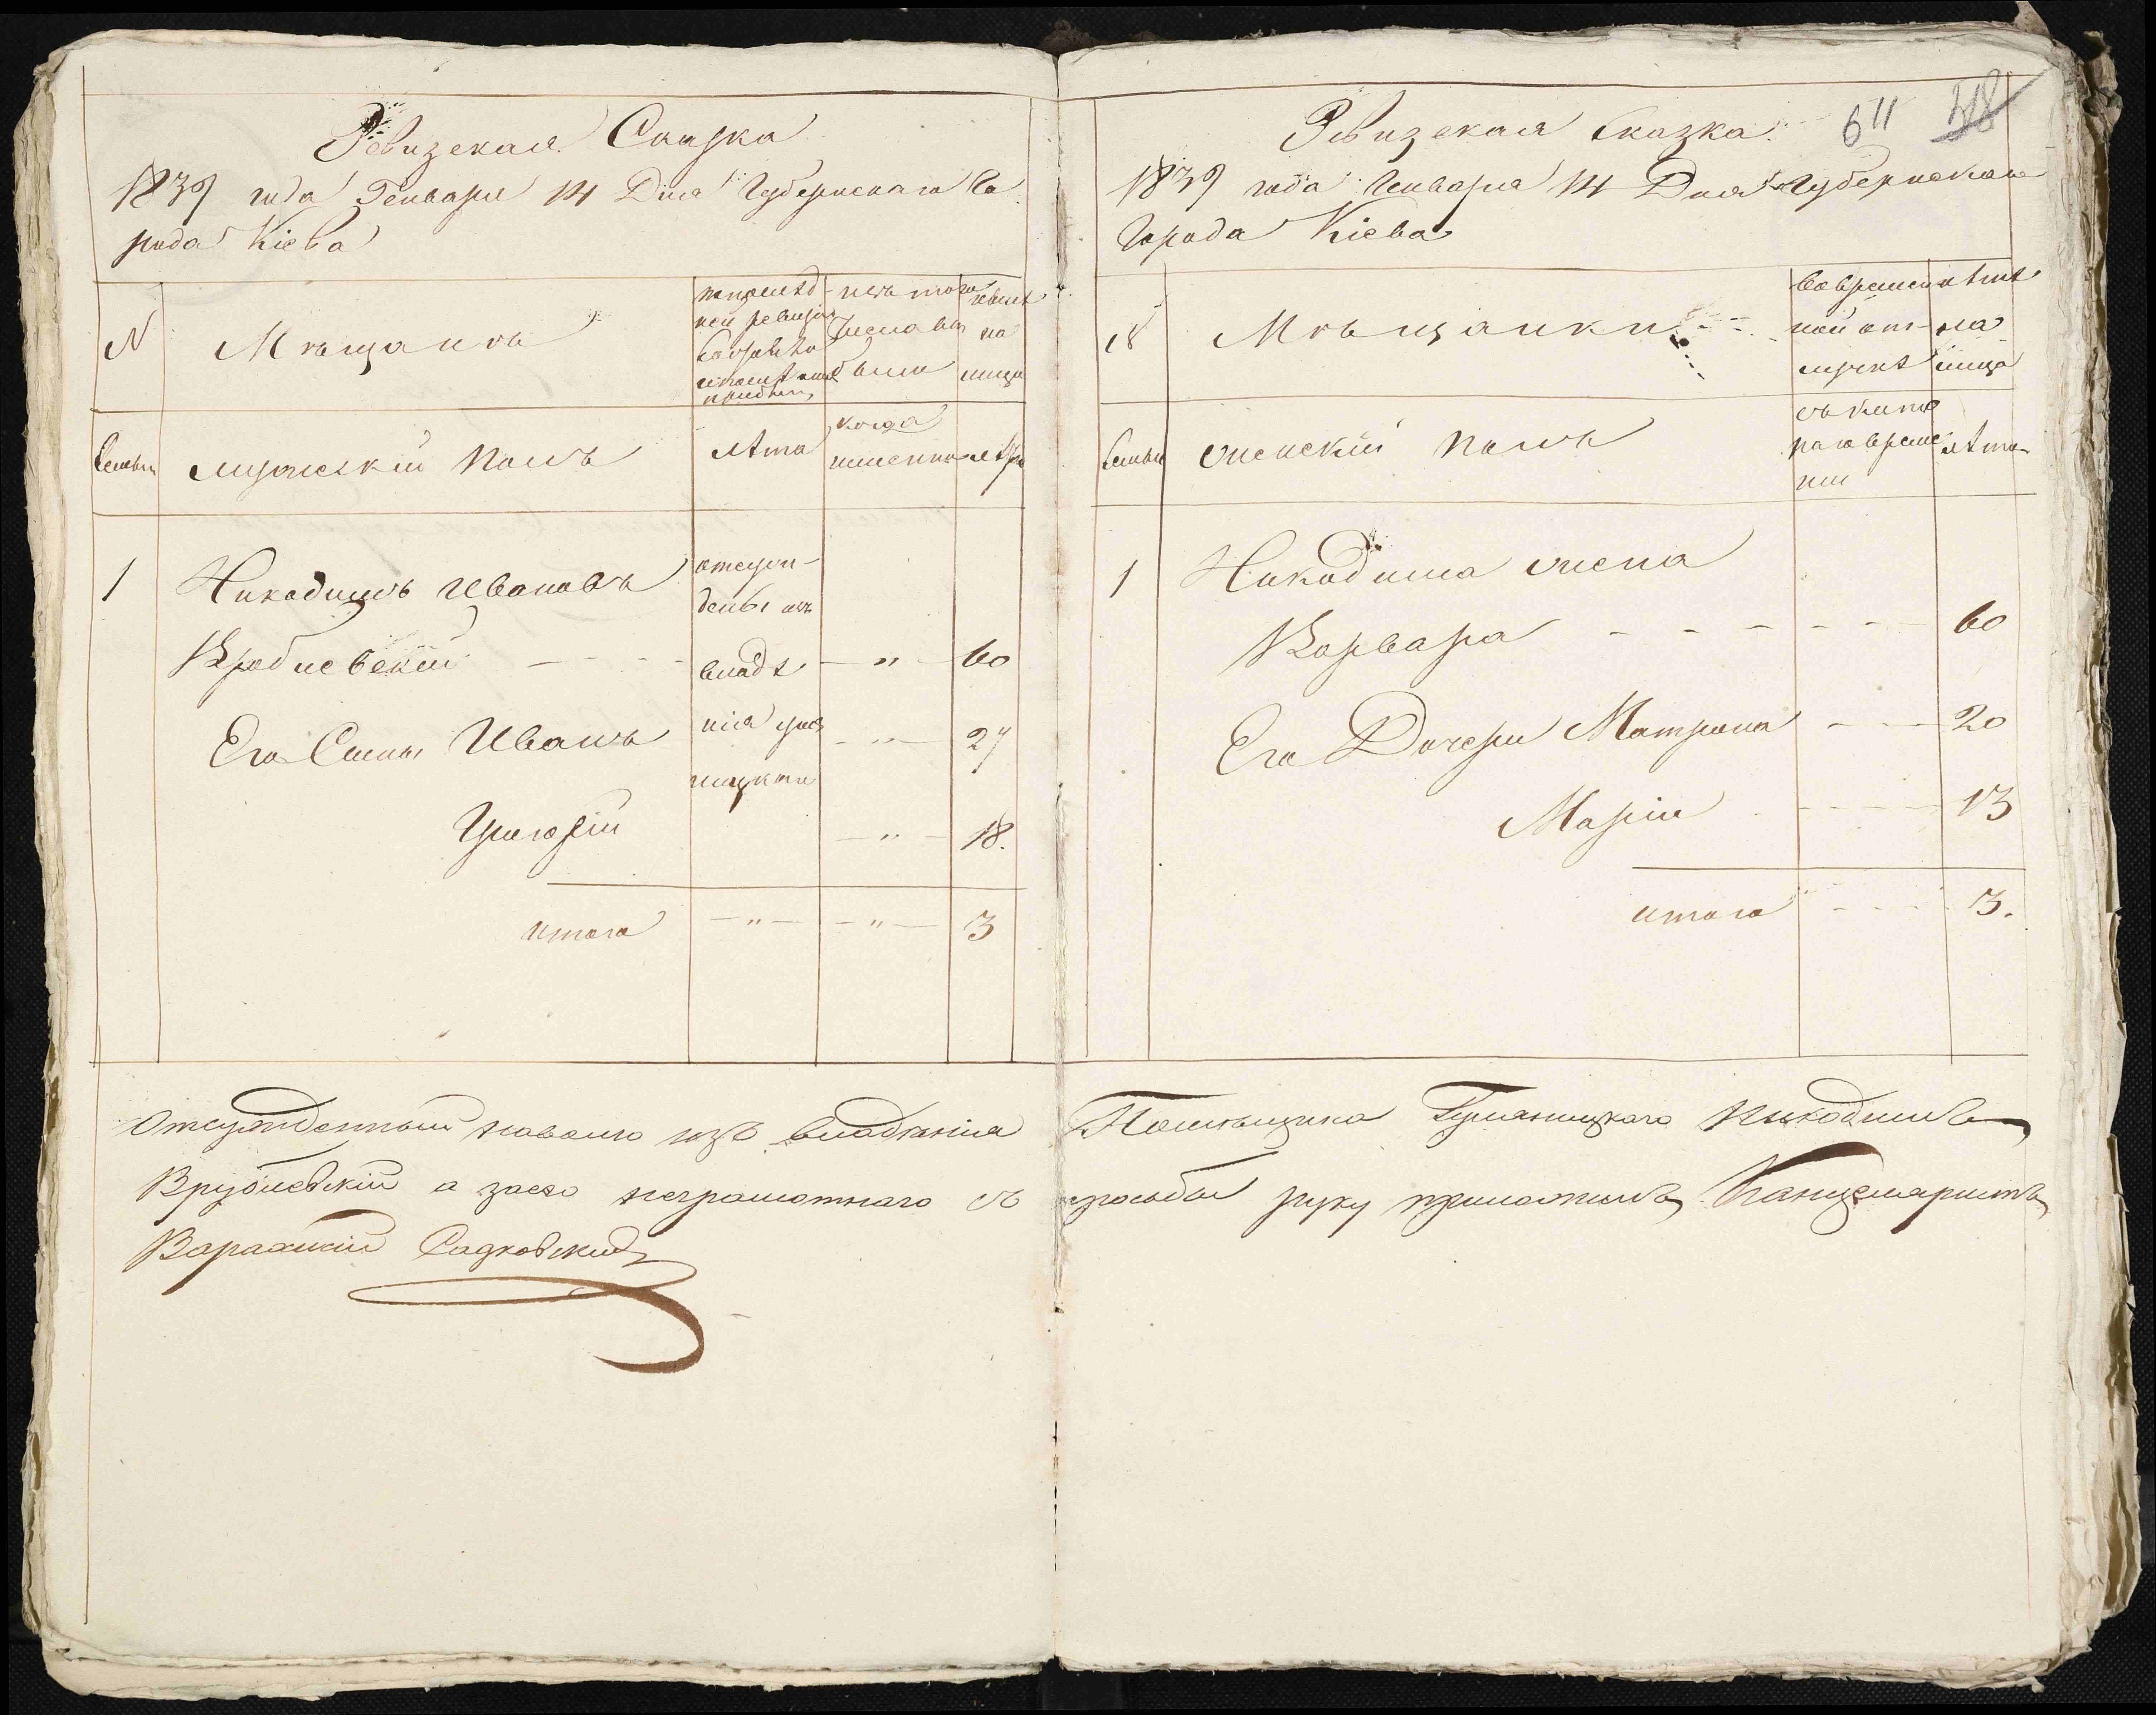 Ревизская Сказка
1839 года Генваря 14 Дня Губернскаго Го
рода Кіева
N
Мещанъ
по послѣд
ней ревизіи
состояло
и послѣ оной
прибыло
изъ того
числа вы
было
нынѣ
на
лицо
семьи
мужескій полъ
лѣта
когда
именно
лѣта
1
Никодимъ Ивановъ
отсуж-
денны изъ
Врублевскій - - - - владѣ - " - 60
нія помѣ
Его Сыны Иванъ - " - 27
щика
Григорій - " - 18.
итого - " - - " - 3
Ревизская Сказка
611 48
1839 года Генваря 14 Дня Губернскаго
Города Кіева
N
Мѣщанки
во времен
ной от-
лучкѣ
нынѣ
на
лицо
семьи
женскій полъ
съ кото
раго време
ни
лѣта
1
Никодима жена
Варвара - - - - - - 60
Его Дочери Матрона - - - 20
Марія - - - - 13
итого - - - - 3.
Отсужденный изъ владѣнія Помѣщика Никодимъ
Врублевскій а за его неграмотнаго съ прозьбы руку приложилъ Канцеляристъ
Садковскій